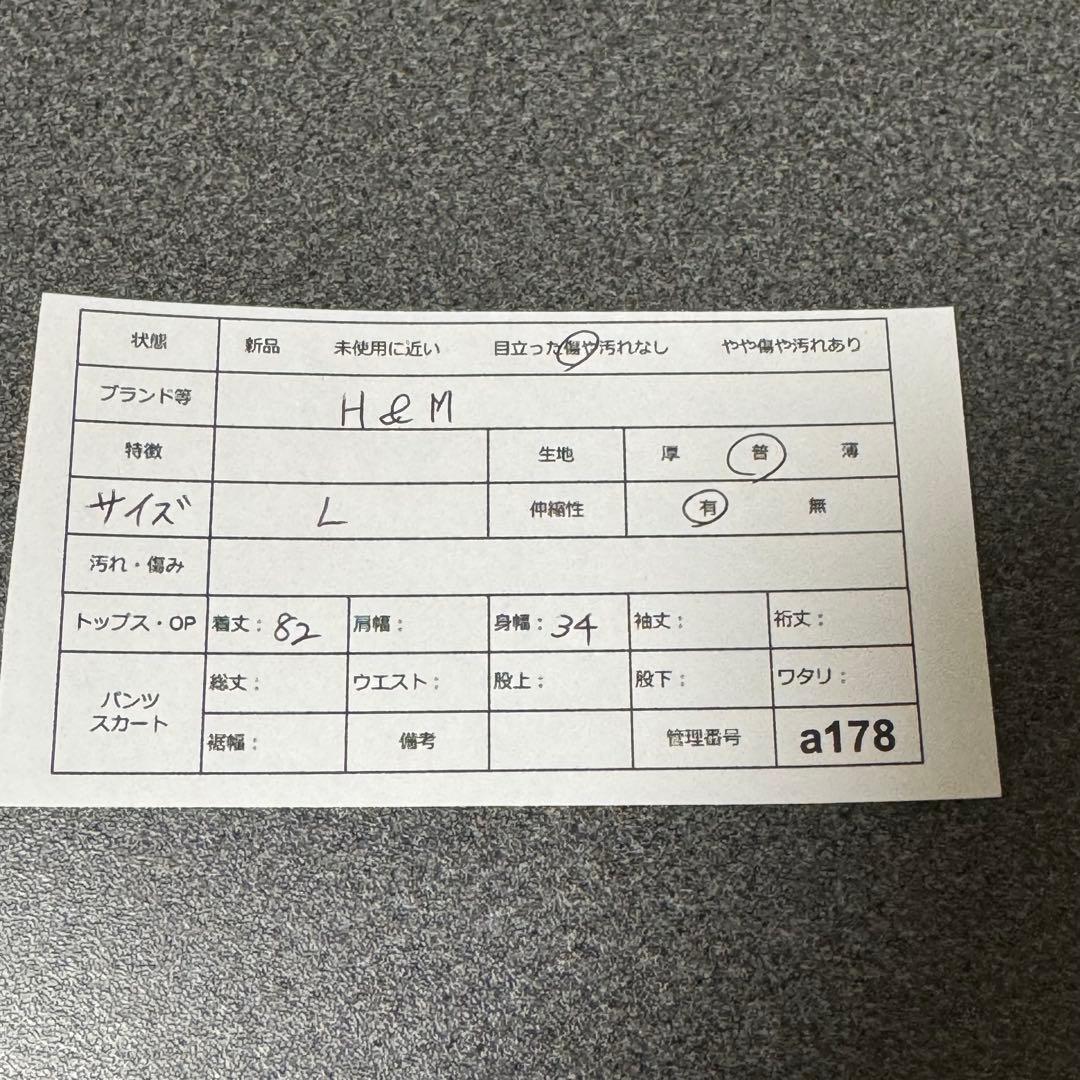 状態 新品 未使用に近い 目立った傷や汚れなし やや傷や汚れあり
ブランド等 H&M
特徴 生地 厚 普 薄
サイズ L 伸縮性 有 無
汚れ・傷み
トップス・OP 着丈: 82 肩幅: 身幅: 34 袖丈: 裄丈:
パンツ スカート 総丈: ウエスト: 股上: 股下: ワタリ:
裾幅: 備考 管理番号 a178